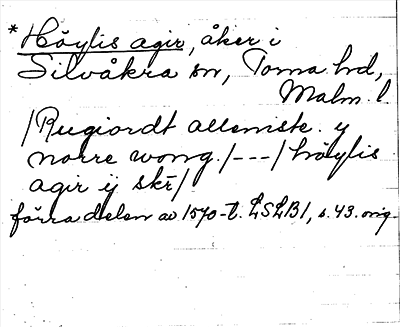 *Höylis agir, åker i
Silvåkra sn, Torna hd,
Malm. l.
/Rugiordt allemiste. y
norre wong./---/höylis
agir ij skr̄/
förra delen av 1570-t. LSLB1, s. 43. orig.